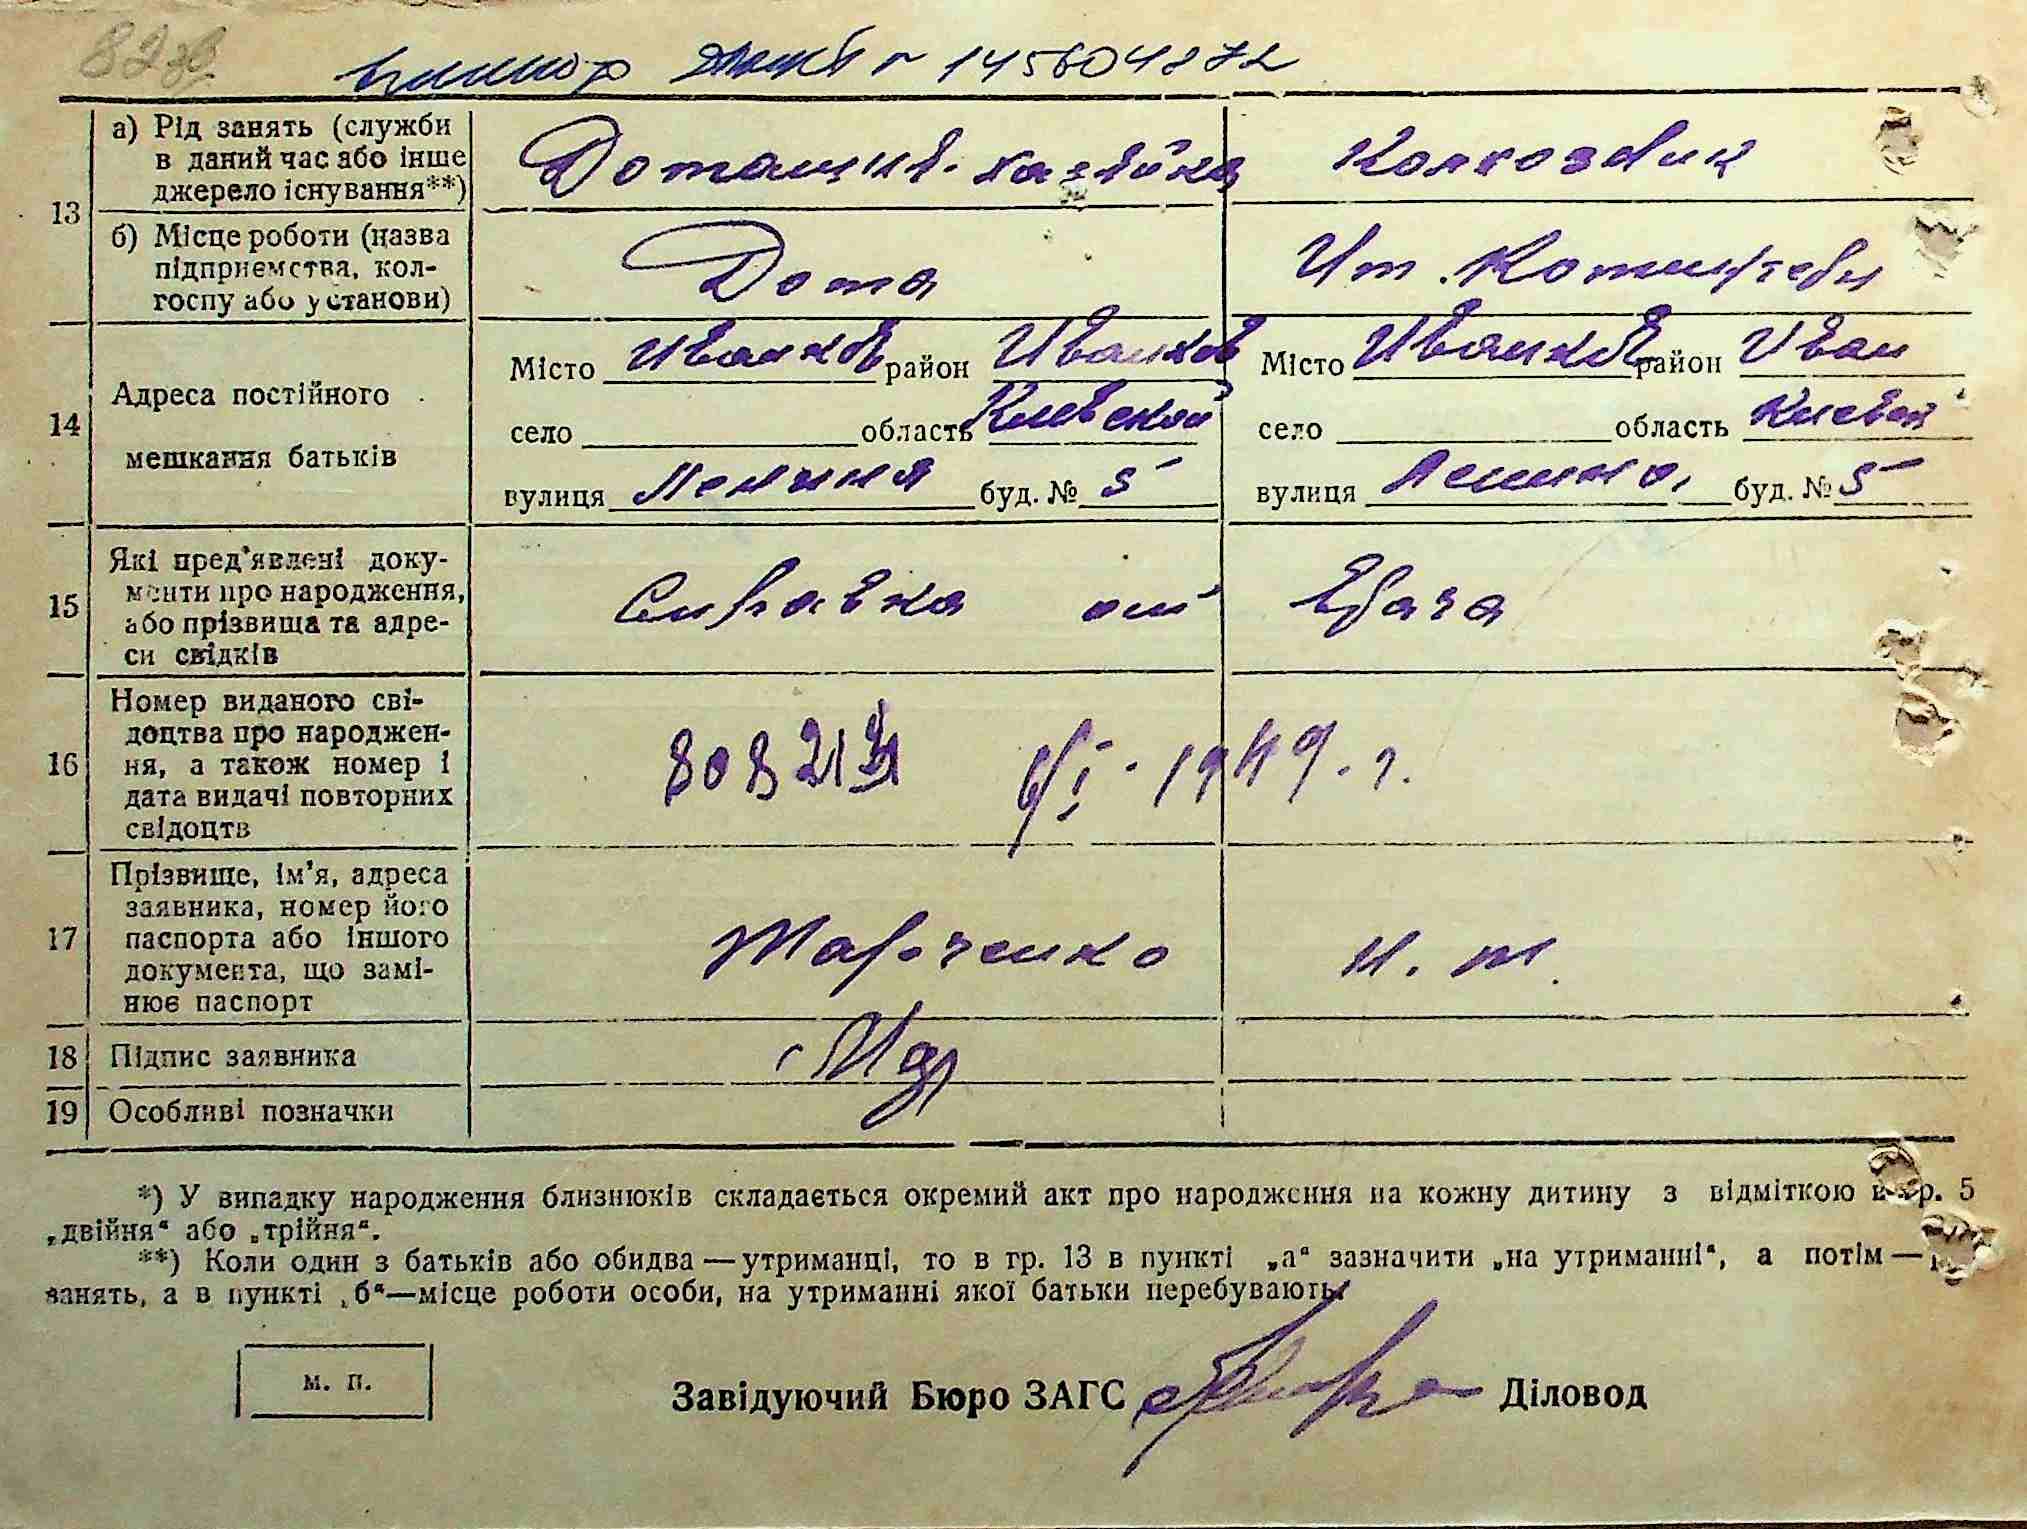 82зв.
145604872
13
а) Рід занять (служби в даний час або інше джерело існування**)
Домашня. хазяйка
Колхозник
б) Місце роботи (назва підприємства, колгоспу або установи)
Дома
Им. Коминтерн
14
Адреса постійного мешкання батьків
Місто Иванков район Иванков
Місто Иванков район Иван
село область Киевской
село область Киевск
вулиця Ленина буд. № 5
вулиця Ленина, буд. № 5
15
Які пред'явлені документи про народження, або прізвища та адреси свідків
Справка от Врача
16
Номер виданого свідоцтва про народження, а також номер і дата видачі повторних свідоцтв
1949. г.
17
Прізвище, ім'я, адреса заявника, номер його паспорта або іншого документа, що замінює паспорт
Марченко И. М.
18
Підпис заявника
19
Особливі позначки
*) У випадку народження близнюків складається окремий акт про народження на кожну дитину з відміткою в гр. 5
„двійня“ або „трійня“.
**) Коли один з батьків або обидва — утриманці, то в гр. 13 в пункті „а“ зазначити „на утриманні“, а потім —
занять, а в пункті „б“—місце роботи особи, на утриманні якої батьки перебувають
м. п.
Завідуючий Бюро ЗАГС
Діловод